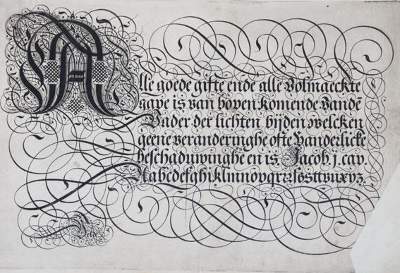 Alle goede gifte ende alle Volmaeckte
gave is van boven komende Vandē
Vader der lichten bijden welcken
geene veranderinghe ofte Vanderlicke
beschaduwinghe en is Jacob. j. cav.
Aabcdefghiklmnopqrrsssttvuxyz.